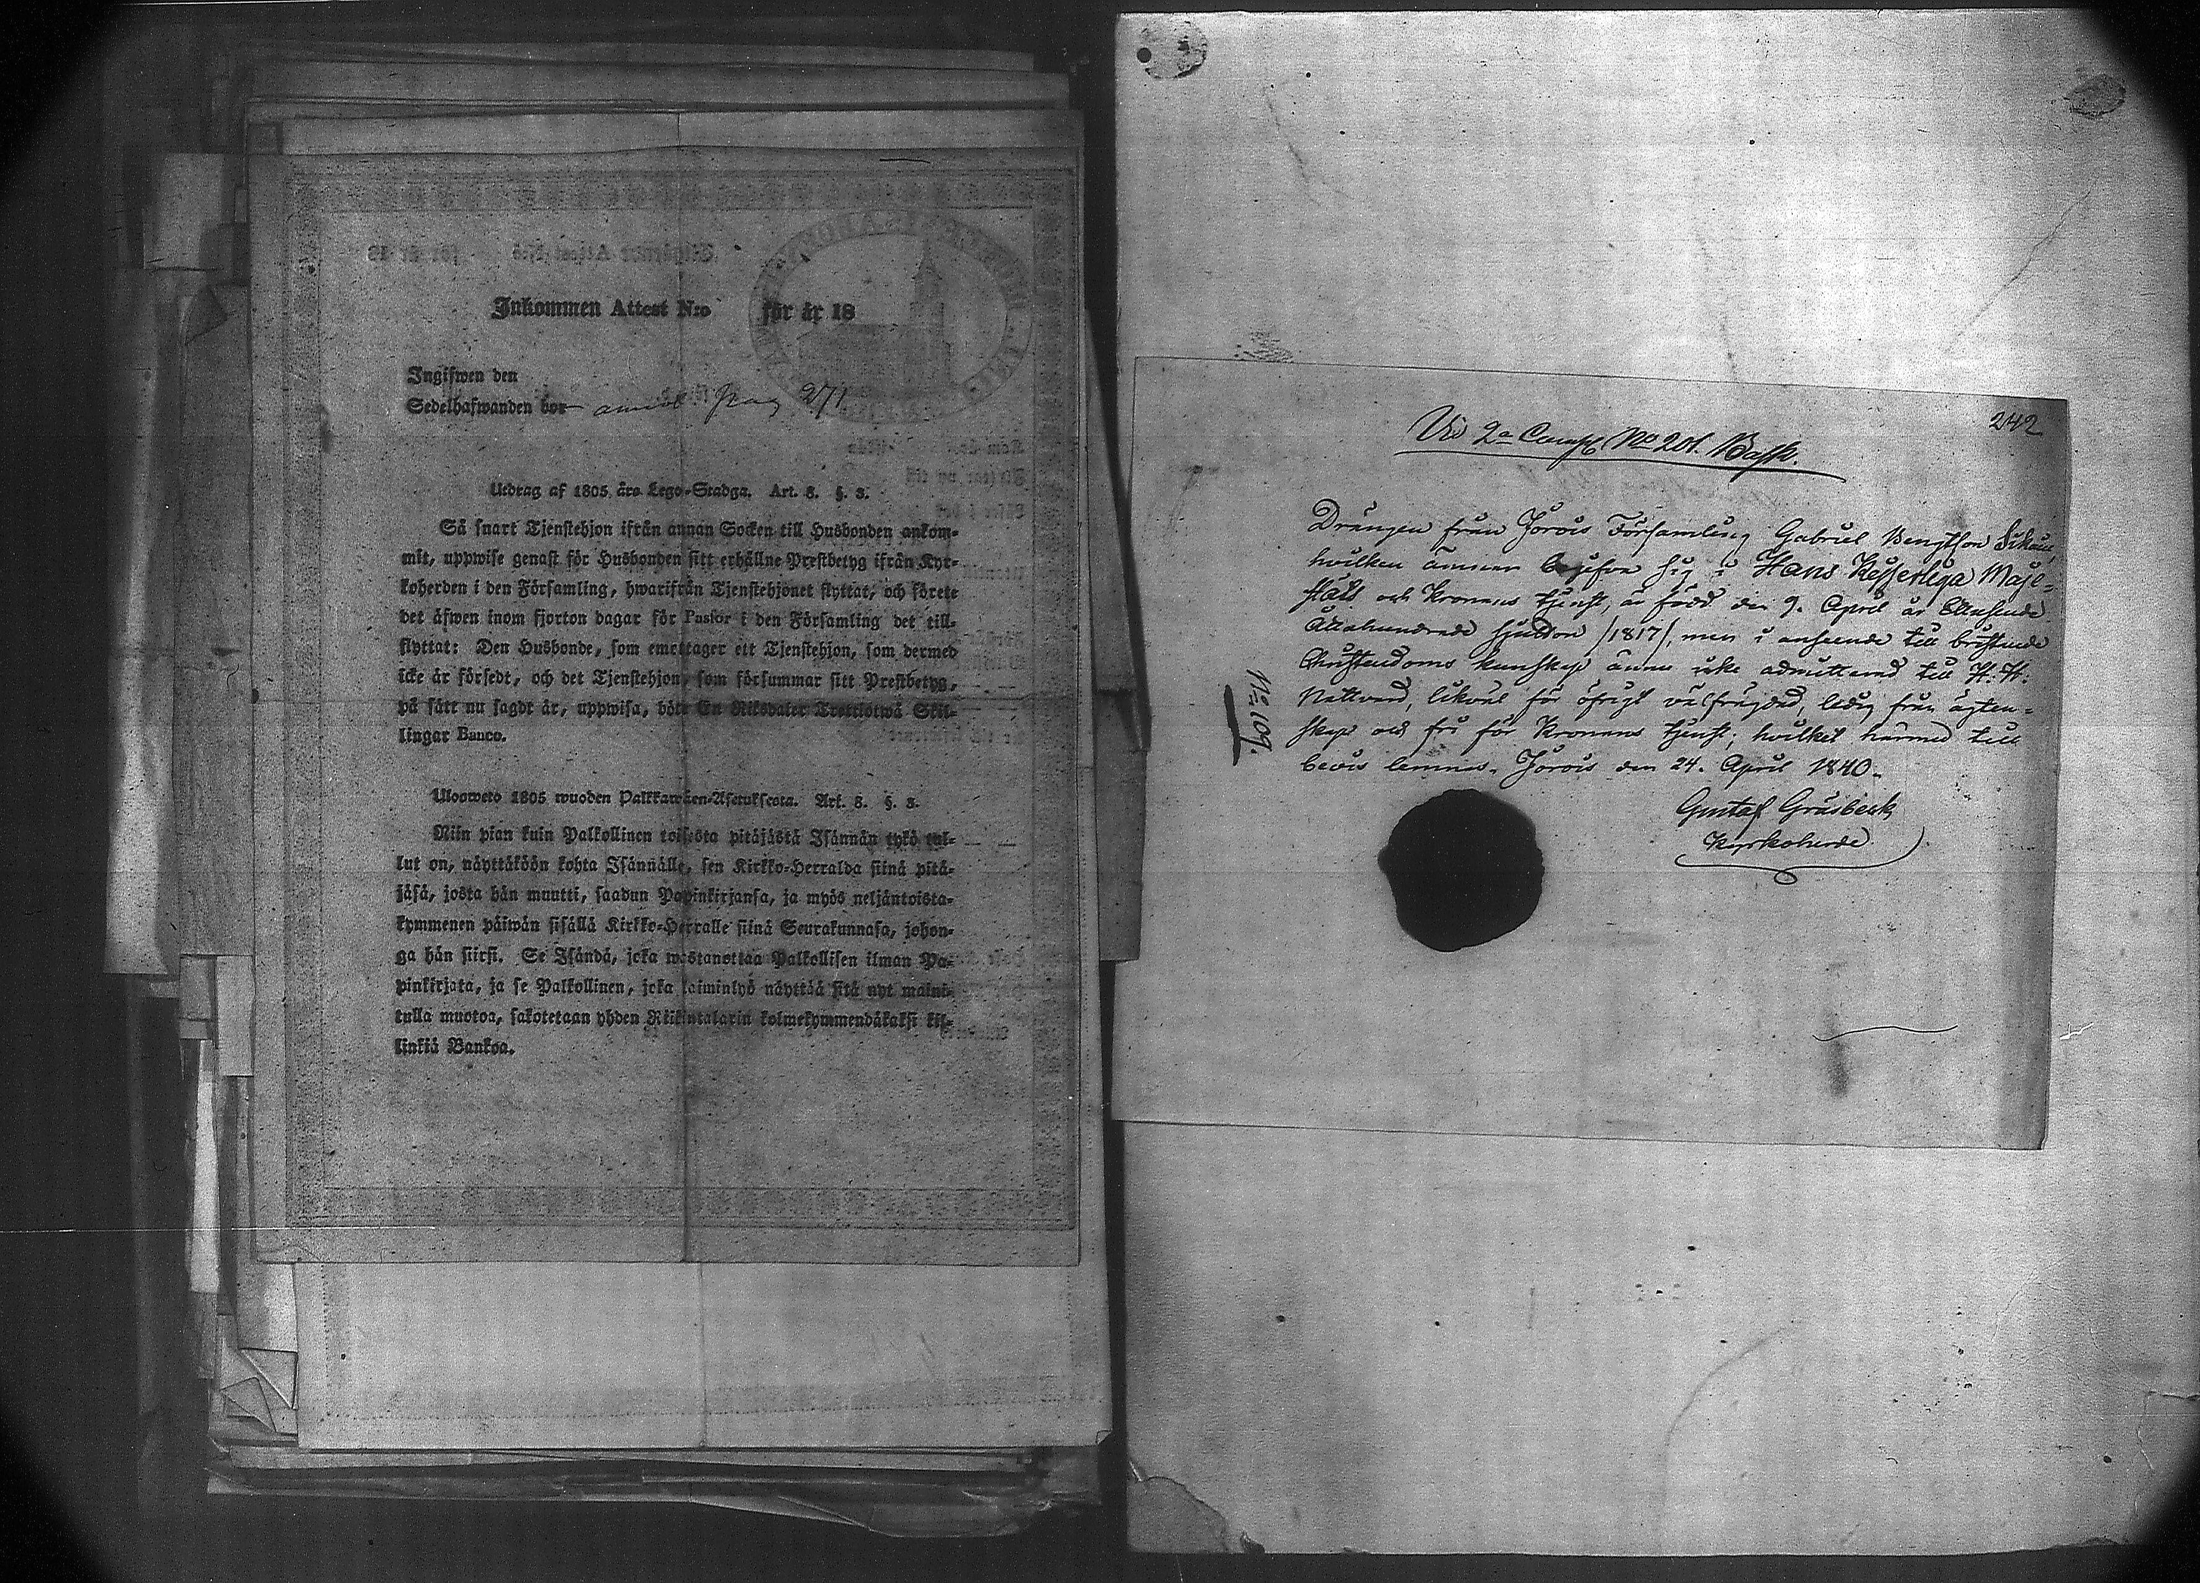 Inkommen Attest N:o för år 18
Ingifwen den
Sedelhafwanden bor 271
Utdrag af 1805 års Lego-Stadga. Art. 8. §. 3.
Så snart Tjenstehjon ifrån annan Socken till Husbonden ankom-
mit, uppwise genast för Husbonden sitt erhållne Prestbetyg ifrån Kyr-
koherden i den Församling, hwarifrån Tjenstehjonet flyttat, och förete
det äfwen inom fjorton dagar för Pastor i den Församling det till-
flyttat: Den Husbonde, som emottager ett Tjenstehjon, som dermed
icke är försedt, och det Tjenstehjon, som försummar sitt Prestbetyg,
på sätt nu sagdt är, uppwisa, böte En Riksdaler Trettiotwå Skil-
lingar Banco.
Ulosweto 1805 wuoden Palkkawäen-Asetuksesta. Art. 8. §. 3.
Niin pian kuin Palkollinen toisesta pitäjästä Isännän tykö tul-
lut on, näyttäköön kohta Isännälle, sen Kirkko-Herralda siinä pitä-
jäsä, josta hän muutti, saadun Papinkirjansa, ja myös neljäntoista-
kymmenen päiwän sisällä Kirkko-Herralle siinä Seurakunnasa, johon-
ga hän siirsi. Se Isändä, joka wastanottaa Palkollisen ilman Pa-
pinkirjata, ja se Palkollinen, joka laiminlyö näyttää sitä nyt maini-
tulla muotoa, sakotetaan yhden Riikintalarin kolmekymmendäkaksi kil-
linkiä Bankoa.
242
Vid 2a Comp. No 201. Bassk.
Drängen från Jorois Församling Gabriel Bengtson Sikain,
hvilken ämnar begifva sig i Hans Kejserliga Maje-
stäts och Kronans tjenst, är född den 9. April år Ettusende
Åttahundrade sjutton /1817/, men i anseende till bristande
Christendoms kunskap ännu icke admitterad till H: H:
Nattvard, likväl för öfrigt välfrägdad, ledig från ägten-
skap och fri för Kronans tjenst; hvilket härmed till
bevis lemnas. Jorois den 24. April 1840.
Gustaf Gråsbeck
Kyrkoherde.
No 109.